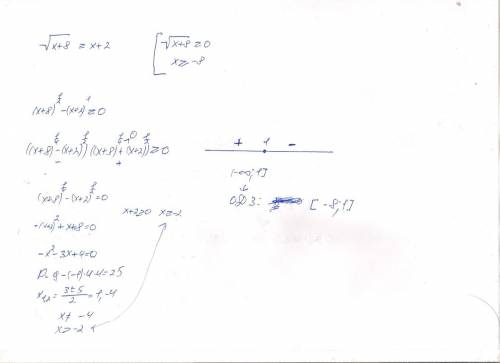 √x+8 = x+2
√x+8 ≥ 0
x ≥ -8
(x+8)^½ - (x+2)^1 ≥ 0
((x+8)^¼ - (x+2)^½)((x+8)^¼ + (x+2)^½) ≥ 0
- +
+ 1 -
(-∞;1]
ОДЗ: [-8;1]
(x+8)^¼ - (x+2)^½ = 0
x+2≥0 x≥-2
-(x+2)² + x+8 = 0
-x²-3x+4=0
D= 9-(-1)·4·4=25
x₁,₂ = 3±5/2 = 1, -4
x≠ -4
x>-2